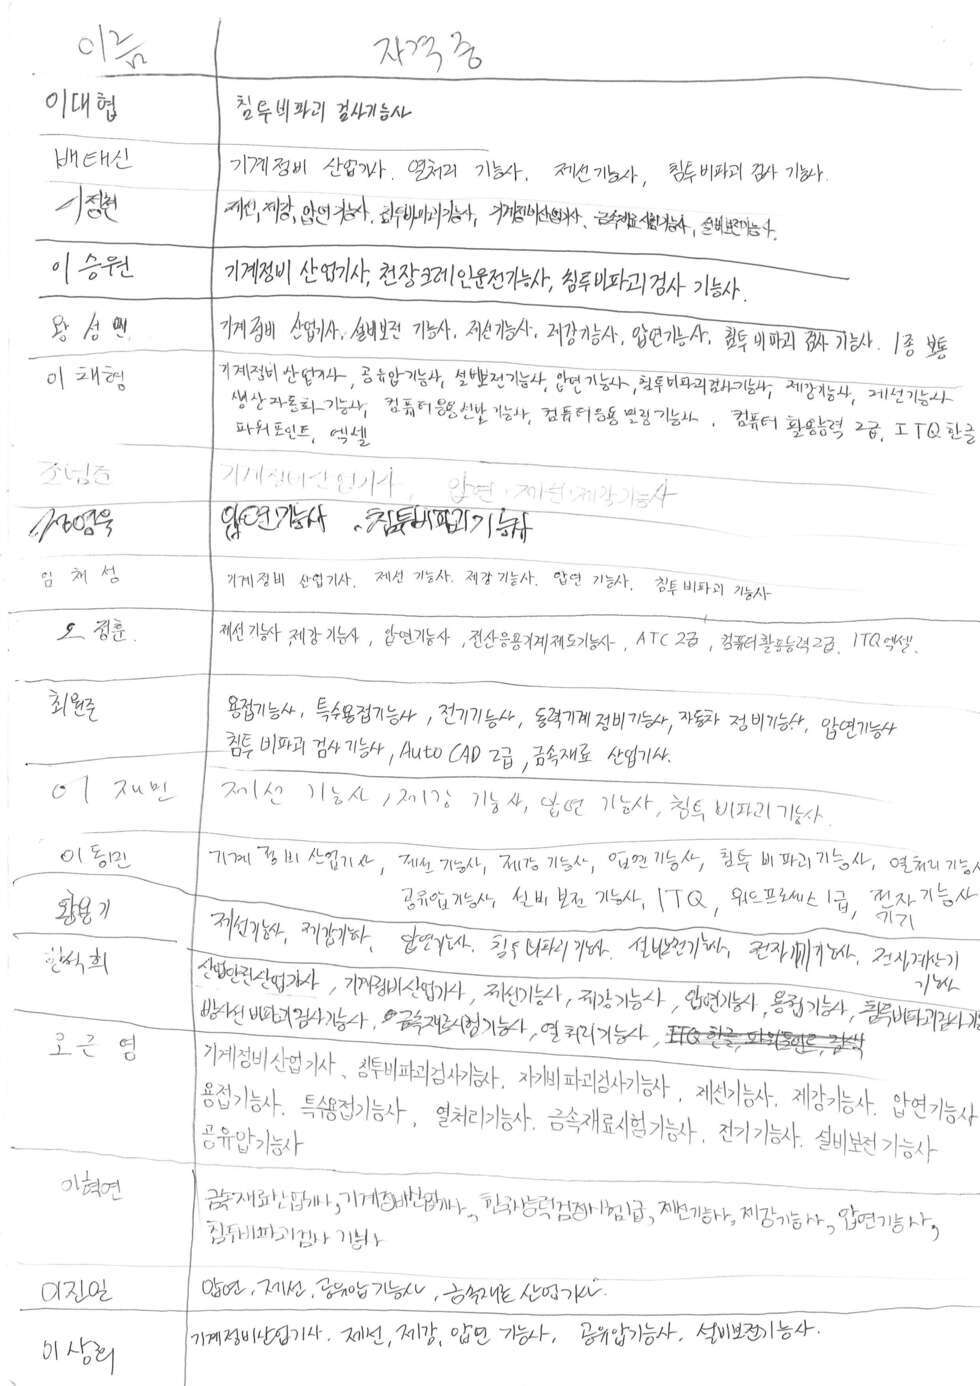 이름 자격증
이대협 침투비파괴 검사기능사
배태신 기계정비 산업기사. 열처리 기능사. 제선기능사, 침투비파괴 검사 기능사.
정현 제선, 제강, 압연기능사, 침투비파괴기능사, 기계정비산업기사. 금속재료시험기능사, 설비보전기능사.
이승원 기계정비 산업기사, 천장크레인운전기능사, 침투비파괴검사 기능사.
왕성민 기계정비 산업기사. 설비보전 기능사. 제선기능사. 제강기능사, 압연기능사. 침투비파괴 검사 기능사. 1종 보통
이채형 기계정비산업기사, 공유압기능사, 설비보전기능사, 압연기능사, 침투비파괴검사기능사, 제강기능사, 제선기능사
생산자동화기능사, 컴퓨터응용선반기능사, 컴퓨터응용 밀링기능사, 컴퓨터 활용능력 2급, ITQ한글
파워포인트, 엑셀
기계정비산업기사, 압연·제선·제강기능사
압연기능사. 침투비파괴기능사
임채성 기계정비 산업기사. 제선 기능사. 제강기능사. 압연 기능사. 침투비파괴 기능사
오정훈. 제선기능사, 제강기능사, 압연기능사, 전산응용기계제도기능사, ATC 2급, 컴퓨터활용능력2급. ITQ엑셀.
최원준 용접기능사, 특수용접기능사, 전기기능사, 동력기계정비기능사, 자동차 정비기능사, 압연기능사
침투비파괴검사기능사, Auto CAD 2급, 금속재료 산업기사.
이재민 제선 기능사, 제강 기능사, 압연 기능사, 침투비파괴기능사.
이동민 기계정비산업기사, 제선기능사, 제강기능사, 압연기능사, 침투비파괴기능사, 열처리기능사
공유압기능사, 설비보전기능사, ITQ, 워드프로세스1급, 전자기기기능사
황용기 제선기능사, 제강기능사, 압연기능사. 침투비파괴기능사. 설비보전기능사, 전자기기기능사, 전자계산기
기능사
한석희 산업안전산업기사, 기계정비산업기사, 제선기능사, 제강기능사, 압연기능사, 용접기능사, 침투비파괴검사기능
방사선비파괴검사기능사, 금속재료시험기능사, 열처리기능사, ITQ 한글, 파워포인트, 엑셀
오근영 기계정비산업기사, 침투비파괴검사기능사. 자기비파괴검사기능사, 제선기능사. 제강기능사. 압연기능사
용접기능사. 특수용접기능사, 열처리기능사. 금속재료시험기능사. 전기기능사. 설비보전기능사
공유압기능사
이혁연 금속재료산업기사, 기계정비산업기사, 한국사능력검정시험1급, 제선기능사, 제강기능사, 압연기능사,
침투비파괴검사기능사
이진일 압연, 제선, 공유압기능사, 금속재료 산업기사.
이상희 기계정비산업기사. 제선, 제강, 압연 기능사, 공유압기능사. 설비보전기능사.